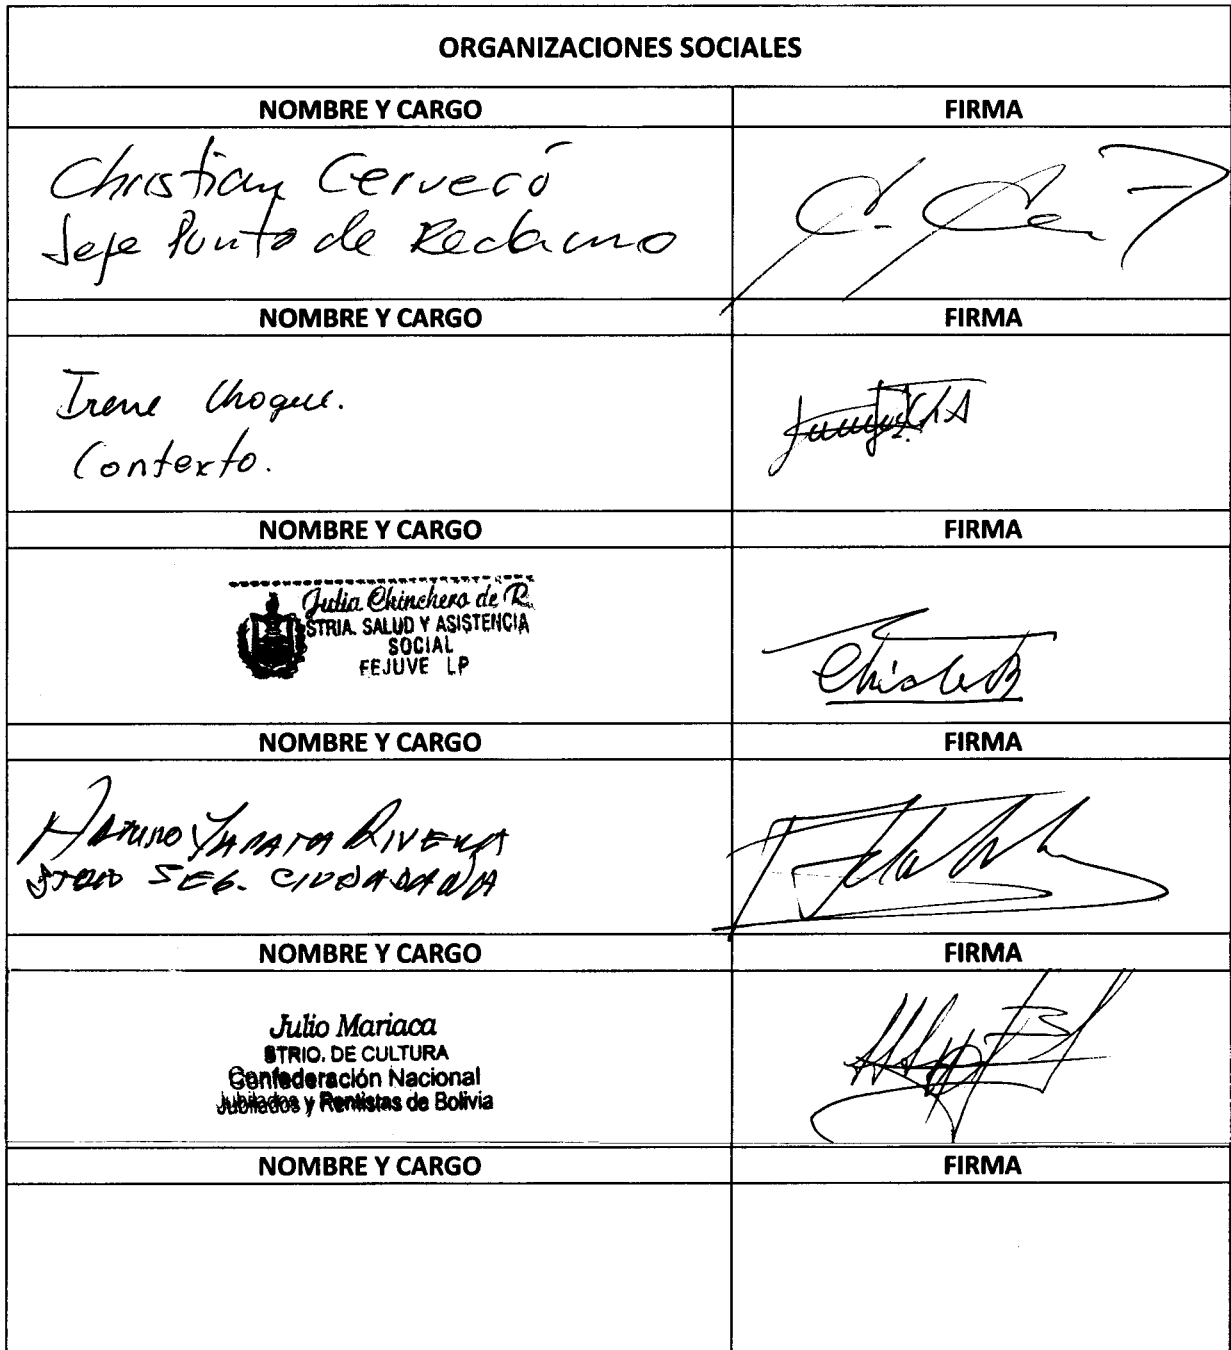 ORGANIZACIONES SOCIALES
NOMBRE Y CARGO FIRMA
Christian Cerveró
Jefe Punto de Reclamo
NOMBRE Y CARGO FIRMA
Irene Choque.
Contexto.
NOMBRE Y CARGO FIRMA
Julia Chinchero de R.
STRIA. SALUD Y ASISTENCIA
SOCIAL
FEJUVE LP
NOMBRE Y CARGO FIRMA
Arturo Yapara Rivera
STRIO SEG. CIUDADANA
NOMBRE Y CARGO FIRMA
Julio Mariaca
STRIO. DE CULTURA
Confederación Nacional
Jubilados y Rentistas de Bolivia
NOMBRE Y CARGO FIRMA